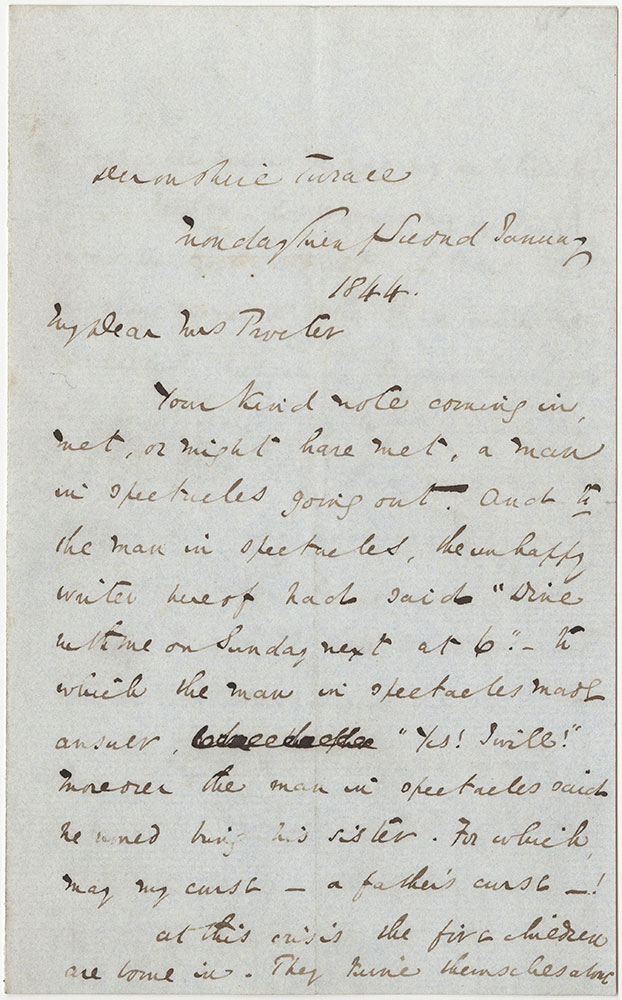 Devonshire Terrace
Monday Twenty Second January
1844.
My Dear Mrs Procter
Your kind note coming in,
met, or might have met, a man
in spectacles going out. And to
the man in spectacles, the unhappy
writer hereof had said "Dine
with me on Sunday next at 6". – to
which the man in spectacles made
answer, "Yes! I will!"
Moreover the man in spectacles said
he would bring his sister. For which,
may my curse – a father's curse –!
At this crisis the five children
are come in. They themselves about